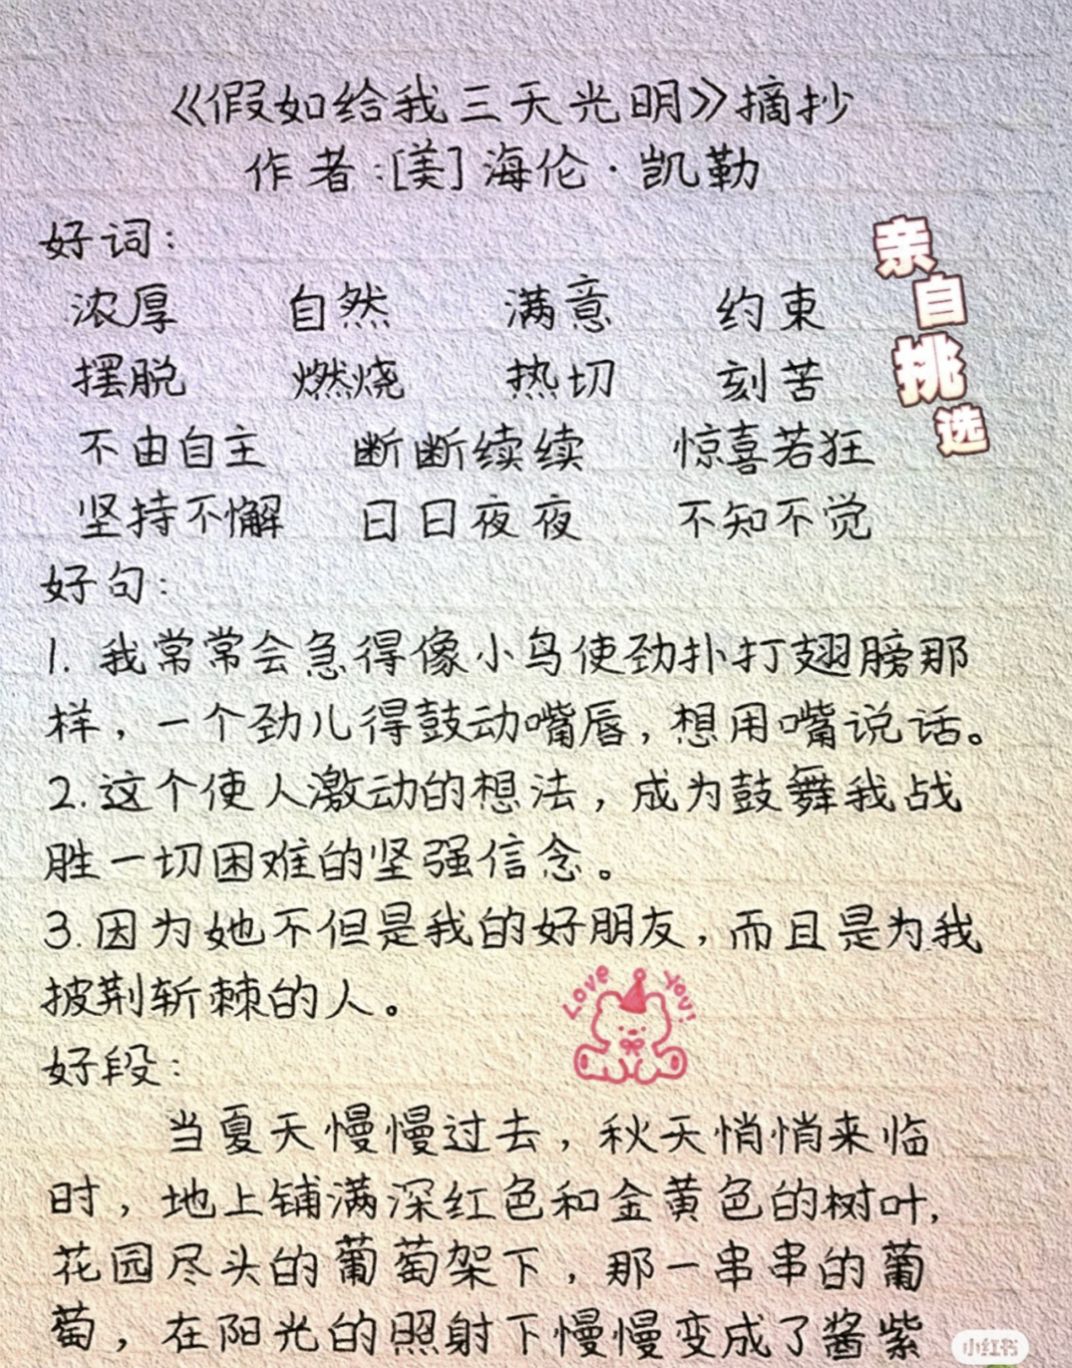 《假如给我三天光明》摘抄
作者:[美]海伦·凯勒
好词:
浓厚 自然 满意 约束
摆脱 燃烧 热切 刻苦
不由自主 断断续续 惊喜若狂
坚持不懈 日日夜夜 不知不觉
亲自挑选
好句:
1. 我常常会急得像小鸟使劲扑打翅膀那
样，一个劲儿得鼓动嘴唇，想用嘴说话。
2.这个使人激动的想法，成为鼓舞我战
胜一切困难的坚强信念。
3.因为她不但是我的好朋友，而且是为我
披荆斩棘的人。
Love You!
好段:
当夏天慢慢过去，秋天悄悄来临
时，地上铺满深红色和金黄色的树叶,
花园尽头的葡萄架下，那一串串的葡
萄，在阳光的照射下慢慢变成了酱紫
小红书